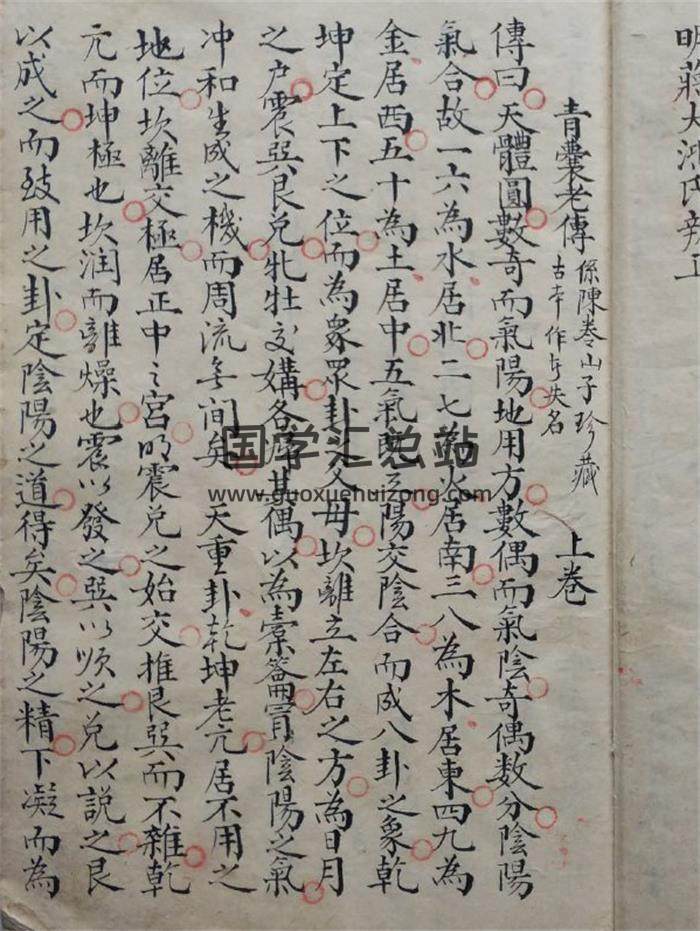 明蔣大鴻氏辨正
青囊老傳 係陳卷山子珍藏 上卷
古本作者失名
傳曰天體圓數奇而氣陽地用方數偶而氣陰奇偶數分陰陽
氣合故一六為水居北二七為火居南三八為木居東四九為
金居西五十為土居中五氣既立陽交陰合而成八卦之象乾
坤定上下之位而為衆眾卦之父母坎離立左右之方為日月
之户震巽艮兌牝牡交媾各席其偶以為橐籥冐陰陽之氣
冲和生成之機而周流無间矣 天重卦乾坤老亢居不用之
地位坎離交極居正中之宮而震兌之始交推艮巽而不雜乾
亢而坤極也坎润而離燥也震以發之巽以顺之兌以説之艮
以成之而致用之卦定陰陽之道得矣陰陽之精下凝而為
国学汇总站
www.guoxuehuizong.com